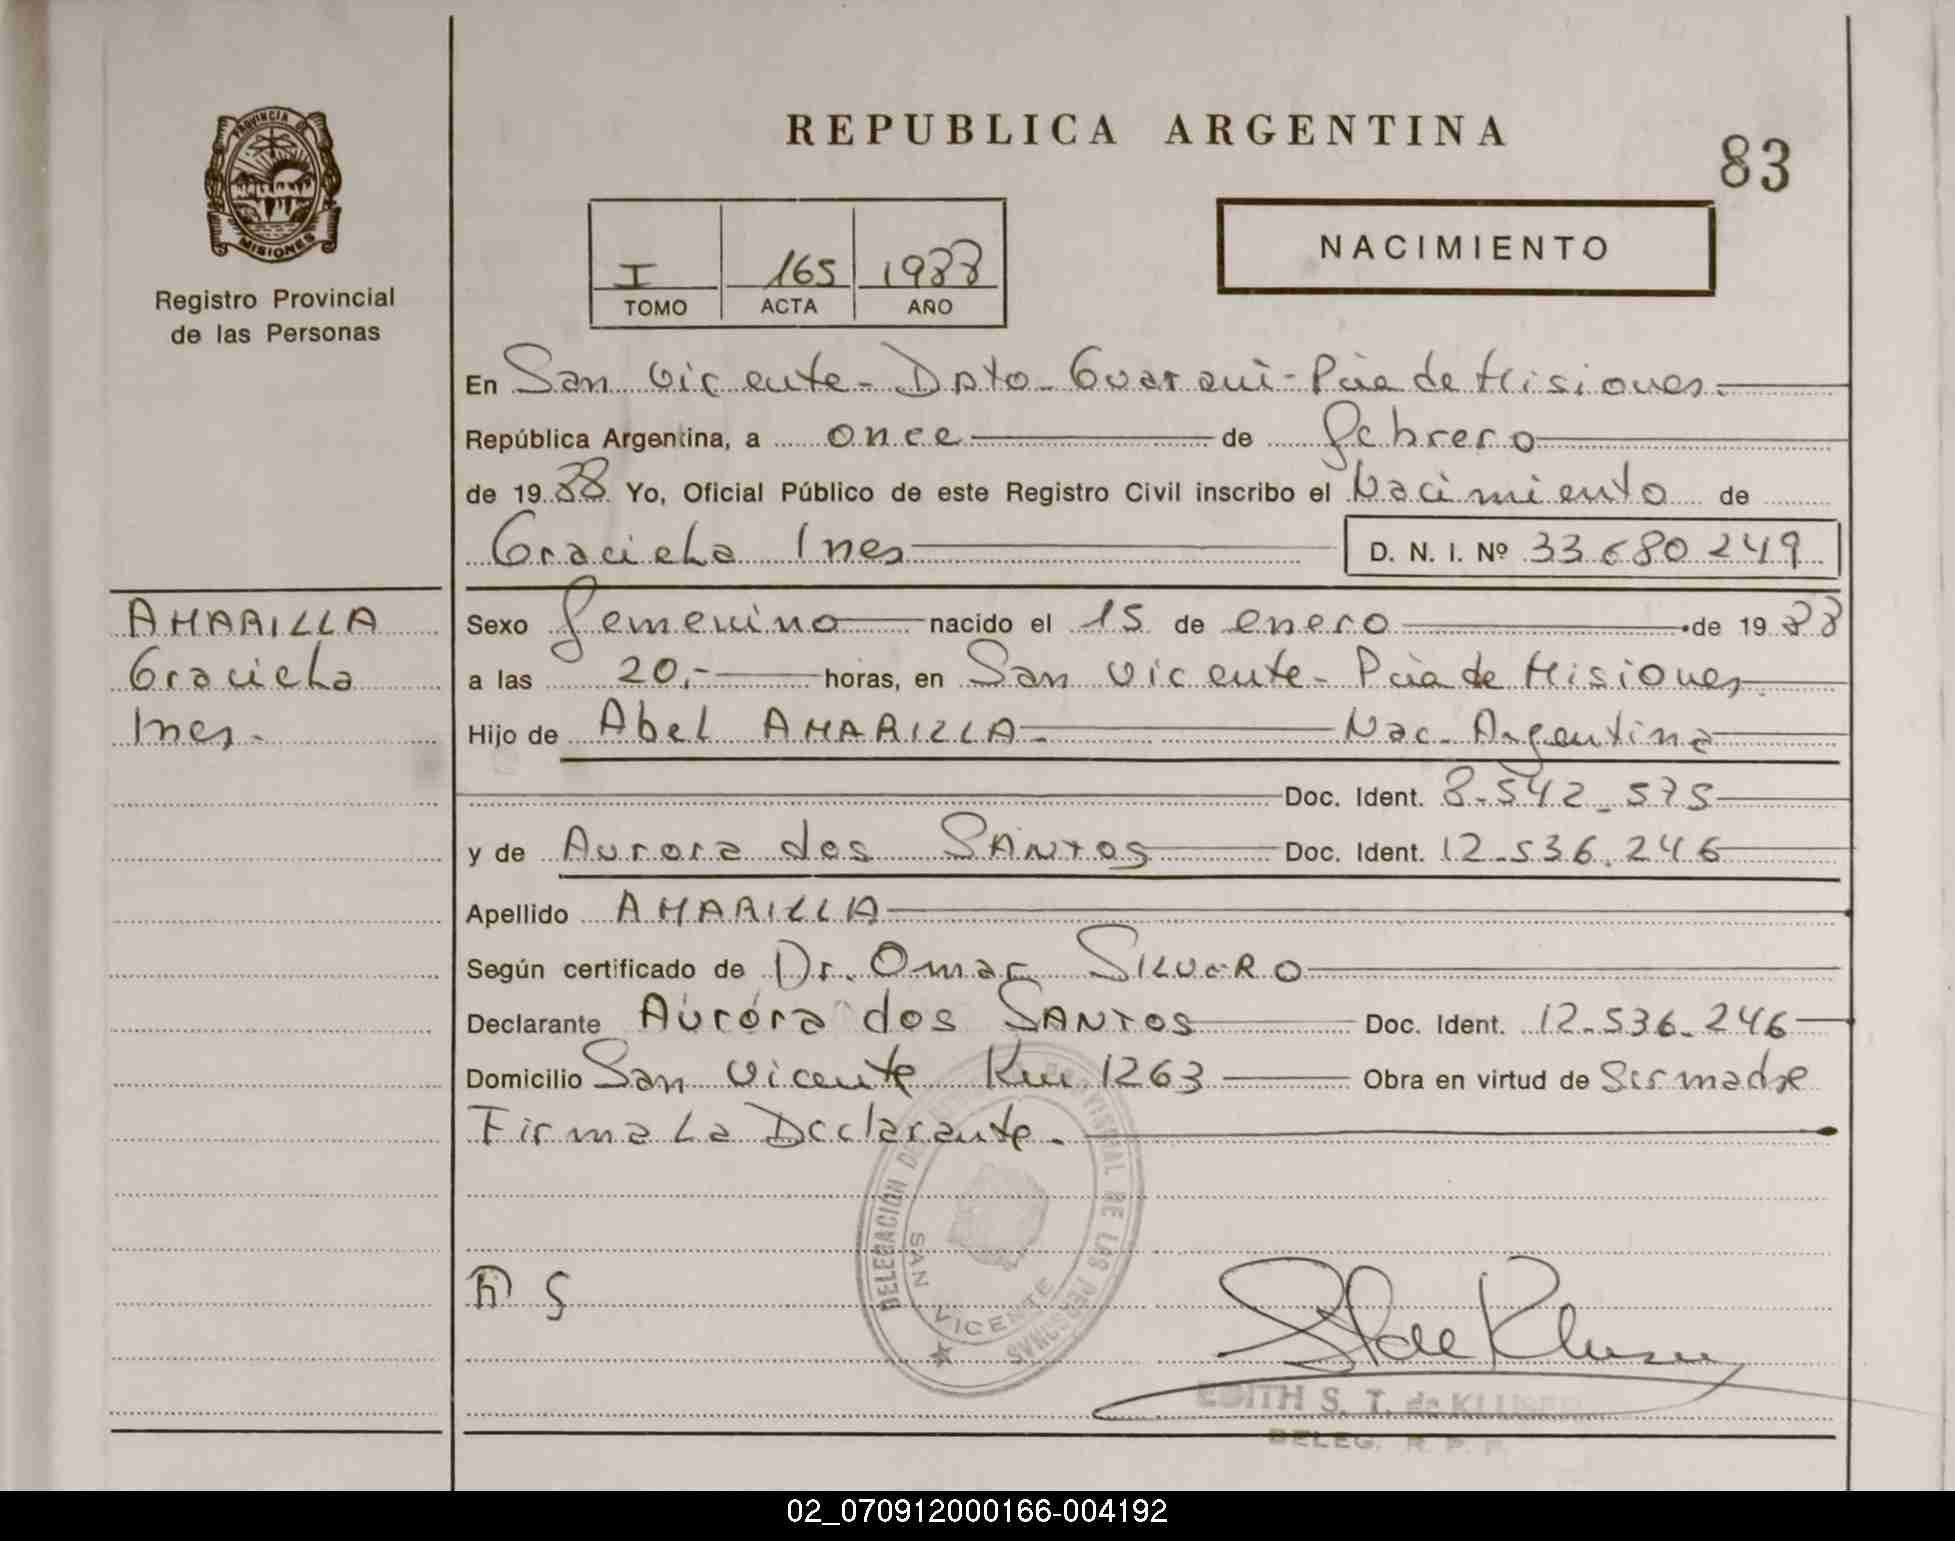 REPUBLICA ARGENTINA
83
PROVINCIA DE
MISIONES
Registro Provincial
de las Personas
I 165 1988
TOMO ACTA AÑO
NACIMIENTO
En San Vicente - Dpto - Guarani - Pcia de Misiones.
República Argentina, a once de febrero
de 1988 Yo, Oficial Público de este Registro Civil inscribo el Nacimiento de
Graciela Ines D. N. I. Nº 33.680.249
AMARILLA
Graciela
Ines.-
Sexo femenino nacido el 15 de enero de 1988
a las 20,- horas, en San Vicente - Pcia de Misiones.
Hijo de Abel AMARILLA - Nac. Argentina
Doc. Ident. 8-542-575
y de Aurora dos SANTOS Doc. Ident. 12-536.246
Apellido AMARILLA
Según certificado de Dr. Omar SILVERO
Declarante Aurora dos SANTOS Doc. Ident. 12-536-246
Domicilio San Vicente Km 1263 Obra en virtud de Ser madre
Firma La Declarante.-
DELEGACION DEL REGISTRO PROVINCIAL DE LAS PERSONAS
SAN VICENTE
A S
EDITH S. T. de KLUSENER
DELEG. R. P. P.
02_070912000166-004192